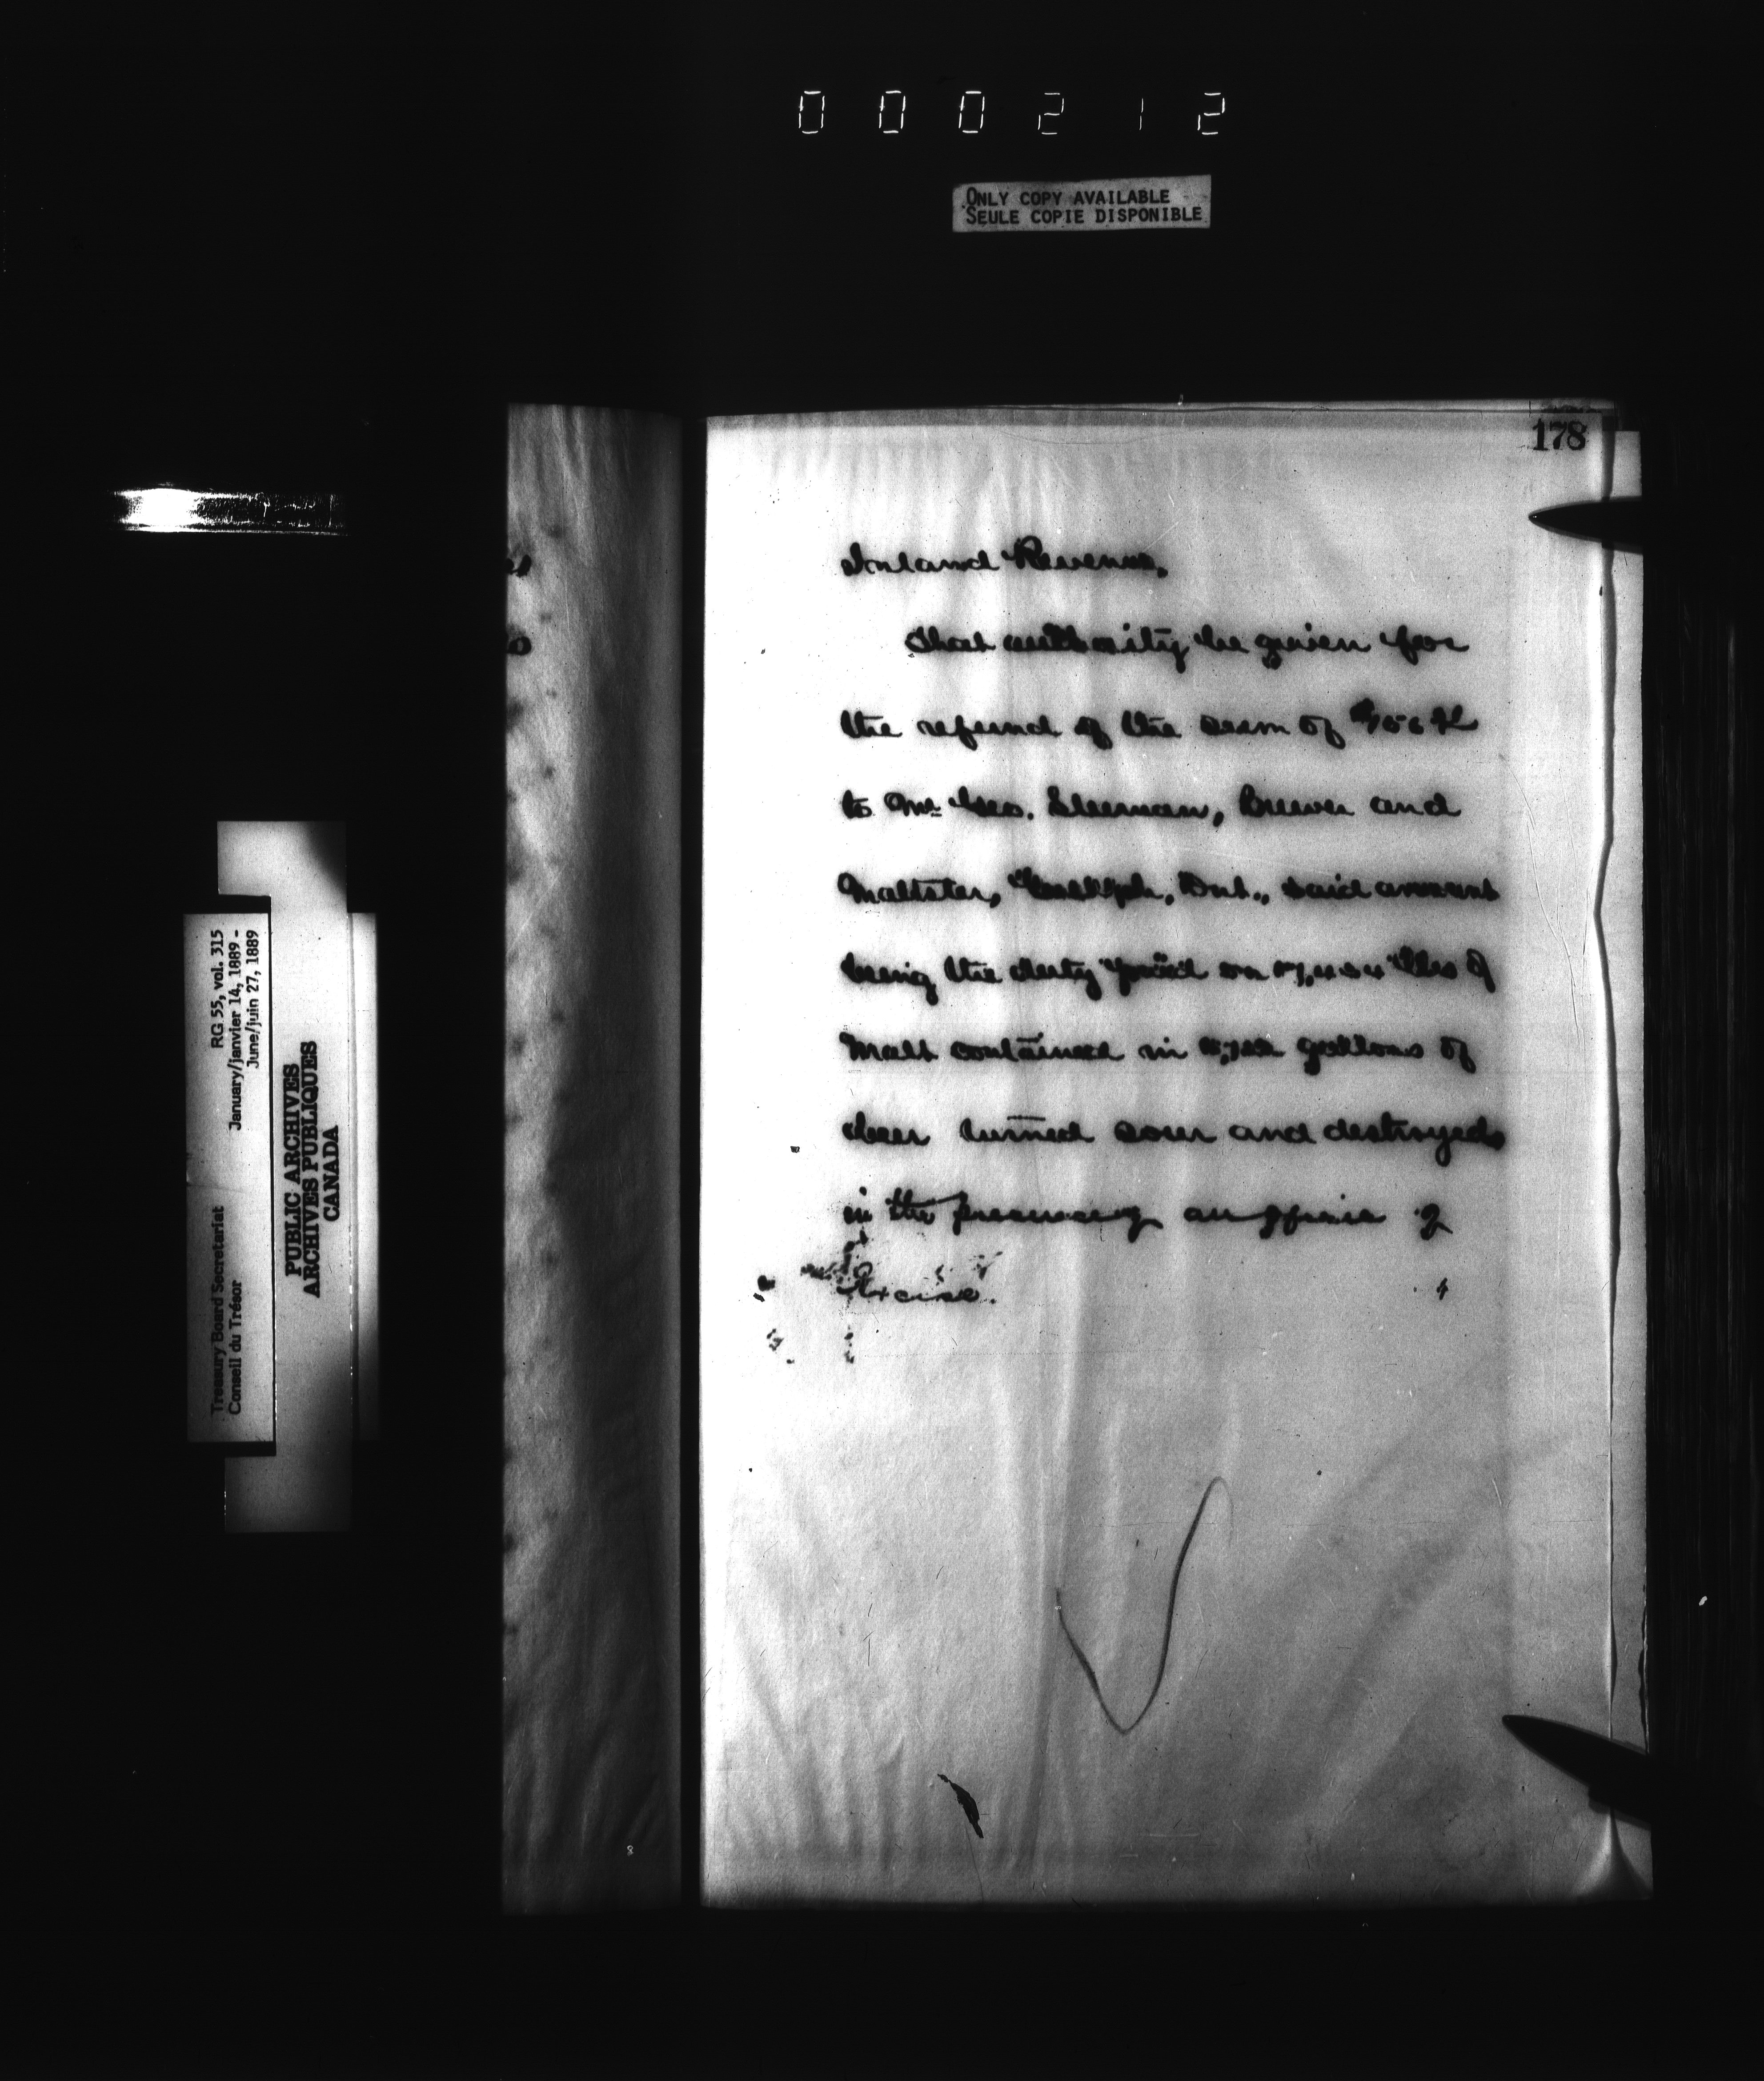 000212
ONLY COPY AVAILABLE
SEULE COPIE DISPONIBLE
178
Inland Revenue.
That authority be given for
the refund of the sum of
to Mr. Geo. Sleeman, Brewer and
Maltster, Guelph, Ont., said amount
being the duty paid on lbs of
Malt contained in gallons of
beer turned sour and destroyed
in the presence of an officer of
Excise.
RG 55, vol. 315
January/janvier 14, 1889 -
June/juin 27, 1889
Treasury Board Secretariat
Conseil du Trésor
PUBLIC ARCHIVES
ARCHIVES PUBLIQUES
CANADA